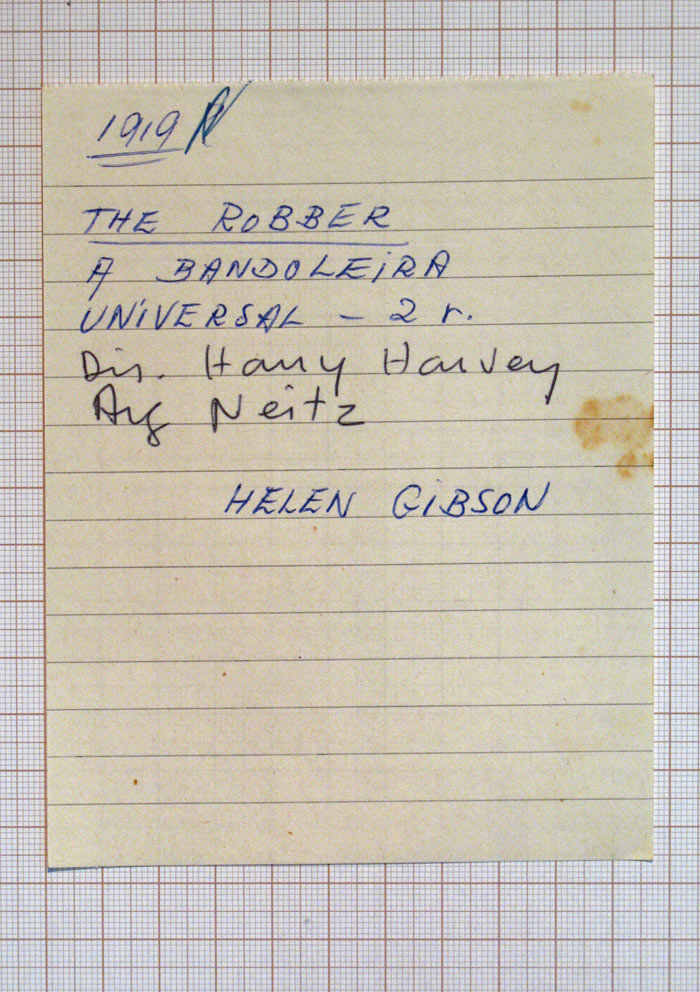 1919
THE ROBBER
A BANDOLEIRA
UNIVERSAL - 2 r.
Dir. Harry Harvey
Arg Neitz
HELEN GIBSON